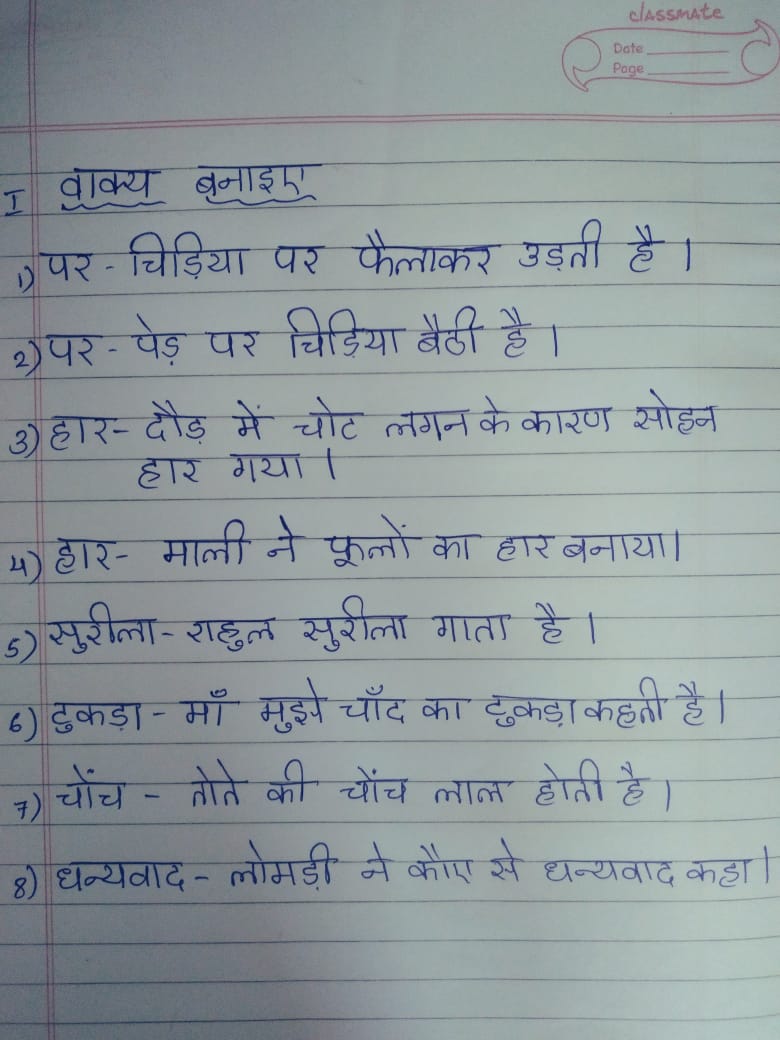 classmate
Date
Page
I वाक्य बनाइए
1) पर - चिड़िया पर फैलाकर उड़ती है ।
2) पर - पेड़ पर चिड़िया बैठी है ।
3) हार - दौड़ में चोट लगन के कारण सोहन
हार गया ।
4) हार - माली ने फूलों का हार बनाया।
5) सुरीला - राहुल सुरीला गाता है ।
6) टुकड़ा - माँ मुझे चाँद का टुकड़ा कहती है।
7) चोंच - तोते की चोंच लाल होती है ।
8) धन्यवाद - लोमड़ी ने कौए से धन्यवाद कहा ।